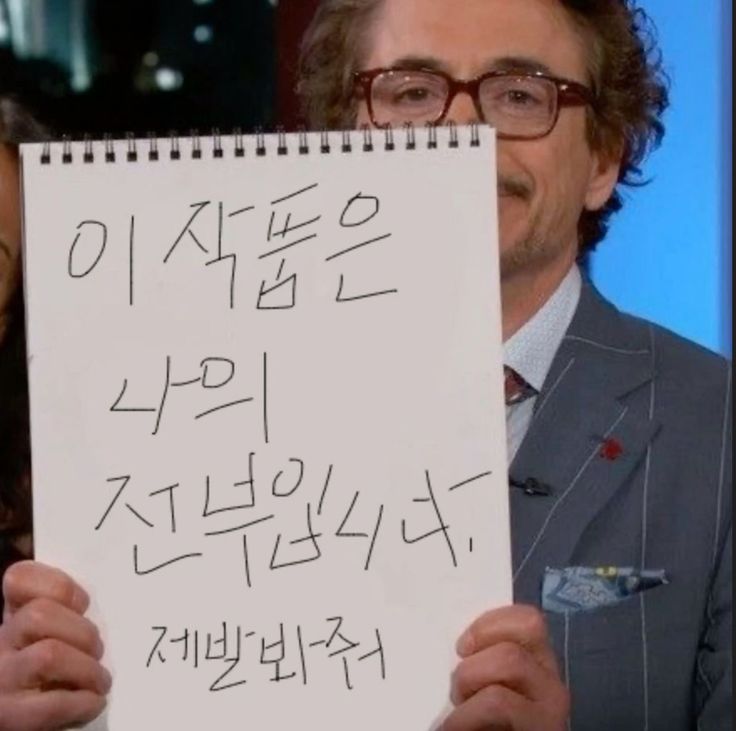 이 작품은
나의
전부입니다.
제발봐줘